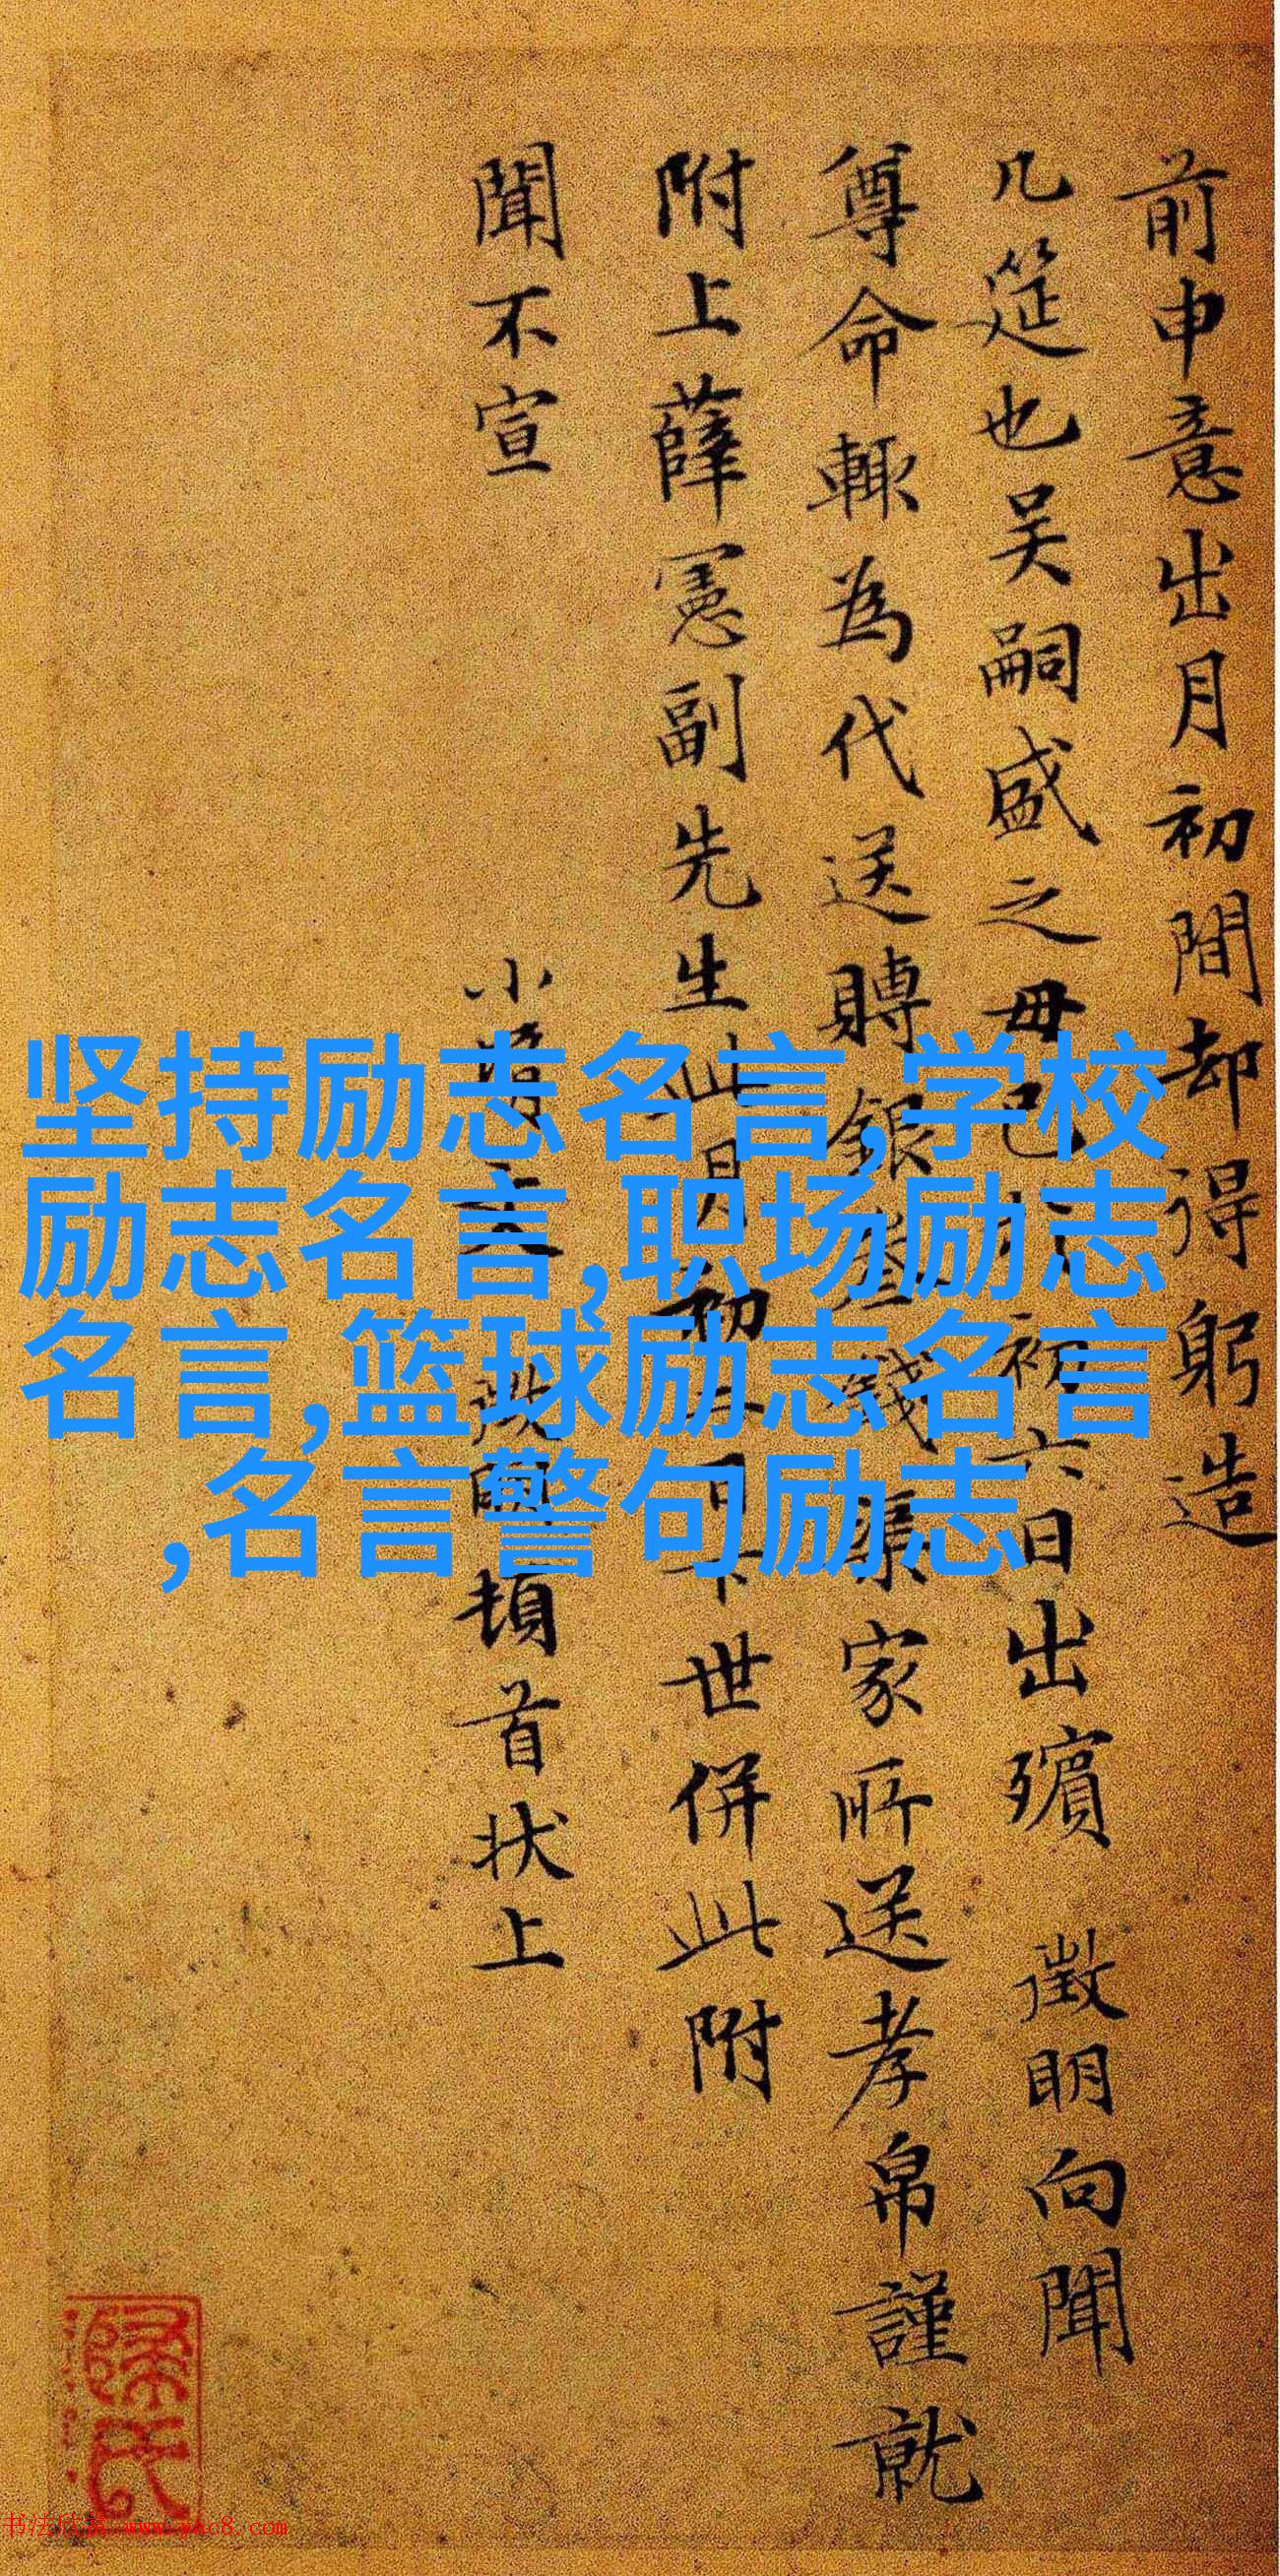 前申意出月初間却得躬造
几筵也吴嗣盛之毋已初六日出殯 徴明向聞
尊命輙為代送賻銀叁錢家所送孝帛謹就
附上薛憲副先生此月初二日世併此附
聞不宣
小頓首状上
坚持励志名言,学校
励志名言,职场励志
名言,篮球励志名言
,名言警句励志
书法欣赏 www.yac8.com